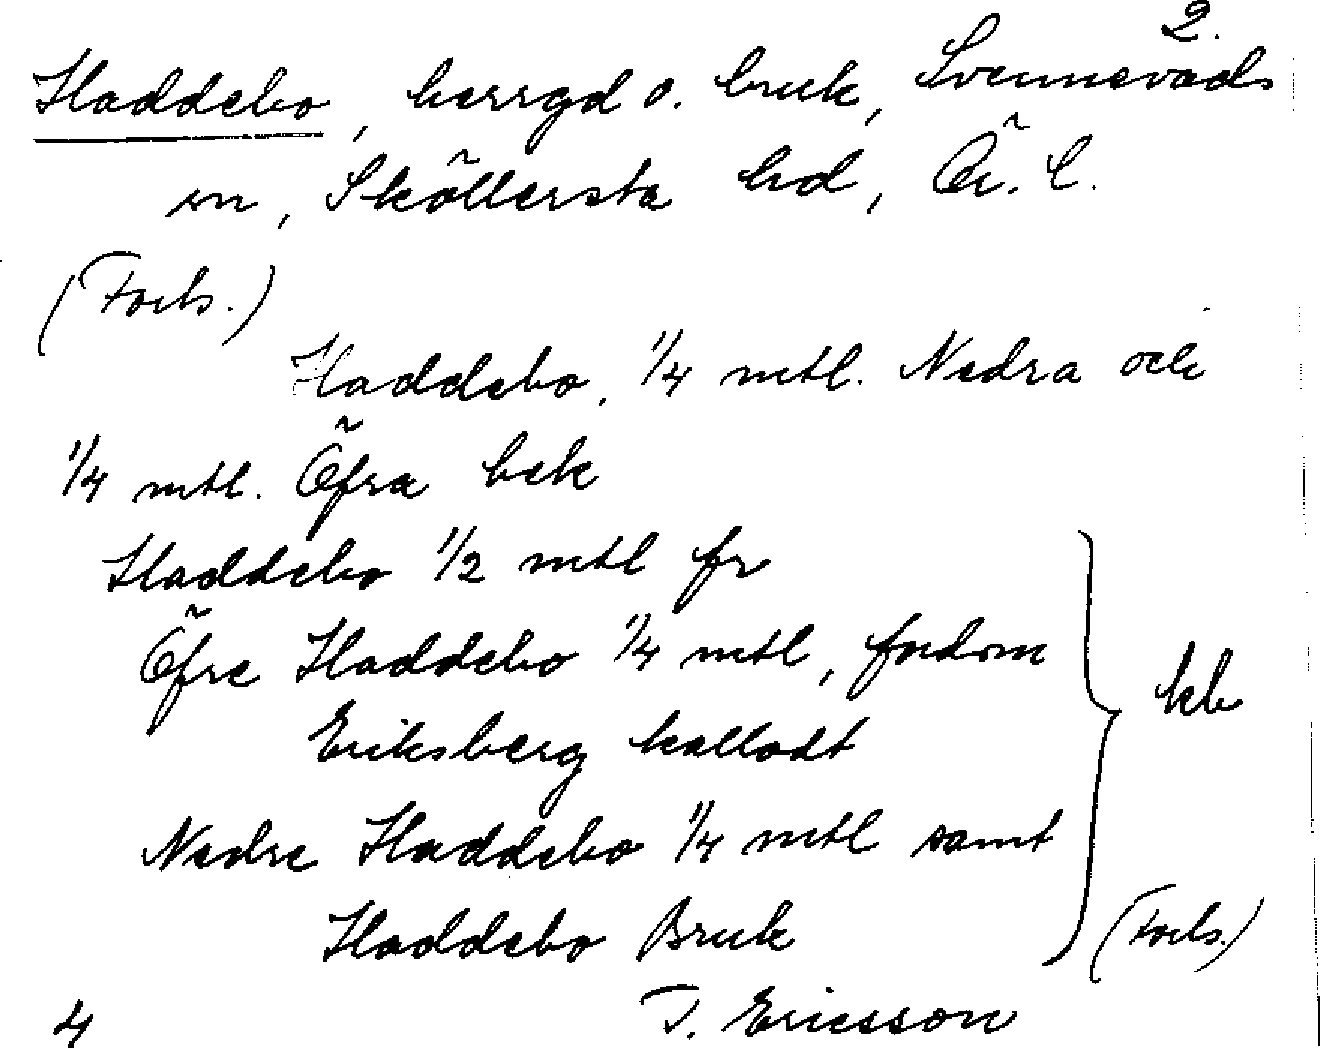 2.
Haddebo, herrgd o. bruk, Svennevads
sn, Sköllersta hd, Ör. l.
(Forts.)
Haddebo, 1/4 mtl. Nedra och
1/4 mtl. Öfra bek
Haddebo 1/2 mtl fr
Öfre Haddebo 1/4 mtl, fordom
Eriksberg kalladt
Nedre Haddebo 1/4 mtl samt
Haddebo Bruk
kb
(Forts.)
4 T. Ericsson